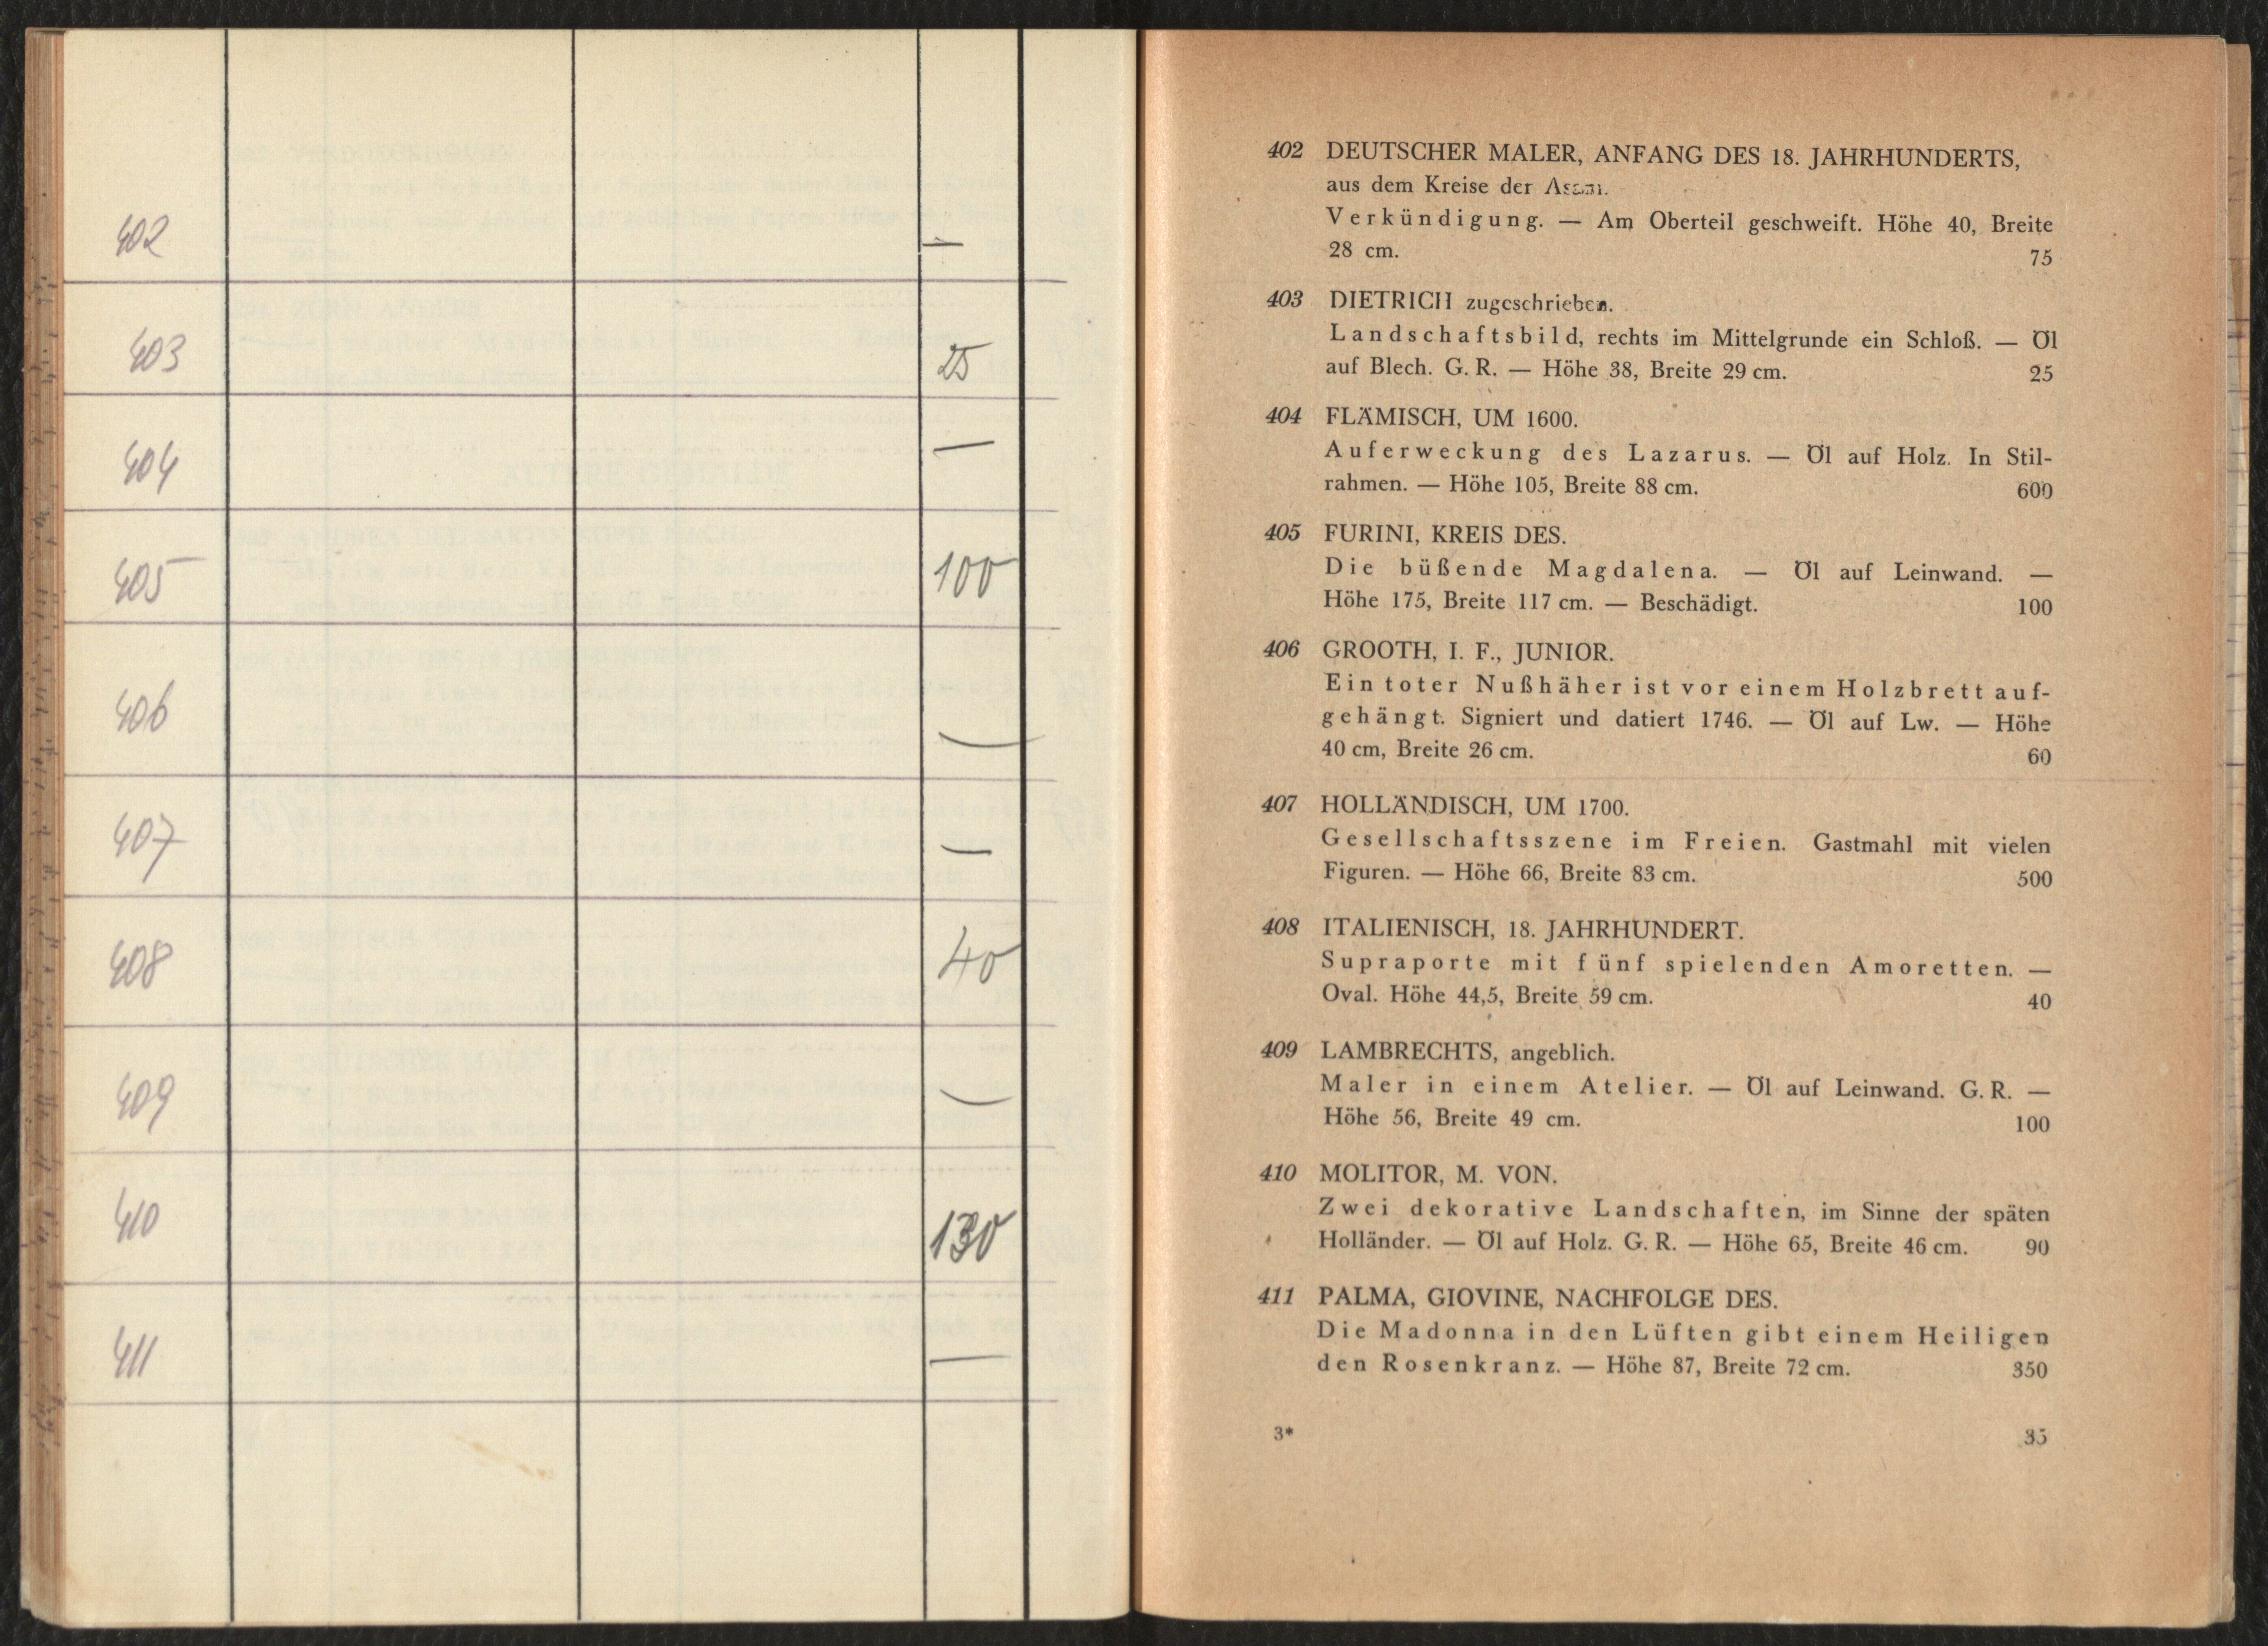 402 —
403 25
404 —
405 100
406 —
407 —
408 40
409 —
410 130
411 —
402 DEUTSCHER MALER, ANFANG DES 18. JAHRHUNDERTS,
aus dem Kreise der Asam.
Verkündigung. — Am Oberteil geschweift. Höhe 40, Breite
28 cm. 75
403 DIETRICH zugeschrieben.
Landschaftsbild, rechts im Mittelgrunde ein Schloß. — Öl
auf Blech. G. R. — Höhe 38, Breite 29 cm. 25
404 FLÄMISCH, UM 1600.
Auferweckung des Lazarus. — Öl auf Holz. In Stil-
rahmen. — Höhe 105, Breite 88 cm. 600
405 FURINI, KREIS DES.
Die büßende Magdalena. — Öl auf Leinwand. —
Höhe 175, Breite 117 cm. — Beschädigt. 100
406 GROOTH, I. F., JUNIOR.
Ein toter Nußhäher ist vor einem Holzbrett auf-
gehängt. Signiert und datiert 1746. — Öl auf Lw. — Höhe
40 cm, Breite 26 cm. 60
407 HOLLÄNDISCH, UM 1700.
Gesellschaftsszene im Freien. Gastmahl mit vielen
Figuren. — Höhe 66, Breite 83 cm. 500
408 ITALIENISCH, 18. JAHRHUNDERT.
Supraporte mit fünf spielenden Amoretten. —
Oval. Höhe 44,5, Breite 59 cm. 40
409 LAMBRECHTS, angeblich.
Maler in einem Atelier. — Öl auf Leinwand. G. R. —
Höhe 56, Breite 49 cm. 100
410 MOLITOR, M. VON.
Zwei dekorative Landschaften, im Sinne der späten
Holländer. — Öl auf Holz. G. R. — Höhe 65, Breite 46 cm. 90
411 PALMA, GIOVINE, NACHFOLGE DES.
Die Madonna in den Lüften gibt einem Heiligen
den Rosenkranz. — Höhe 87, Breite 72 cm. 350
3* 35